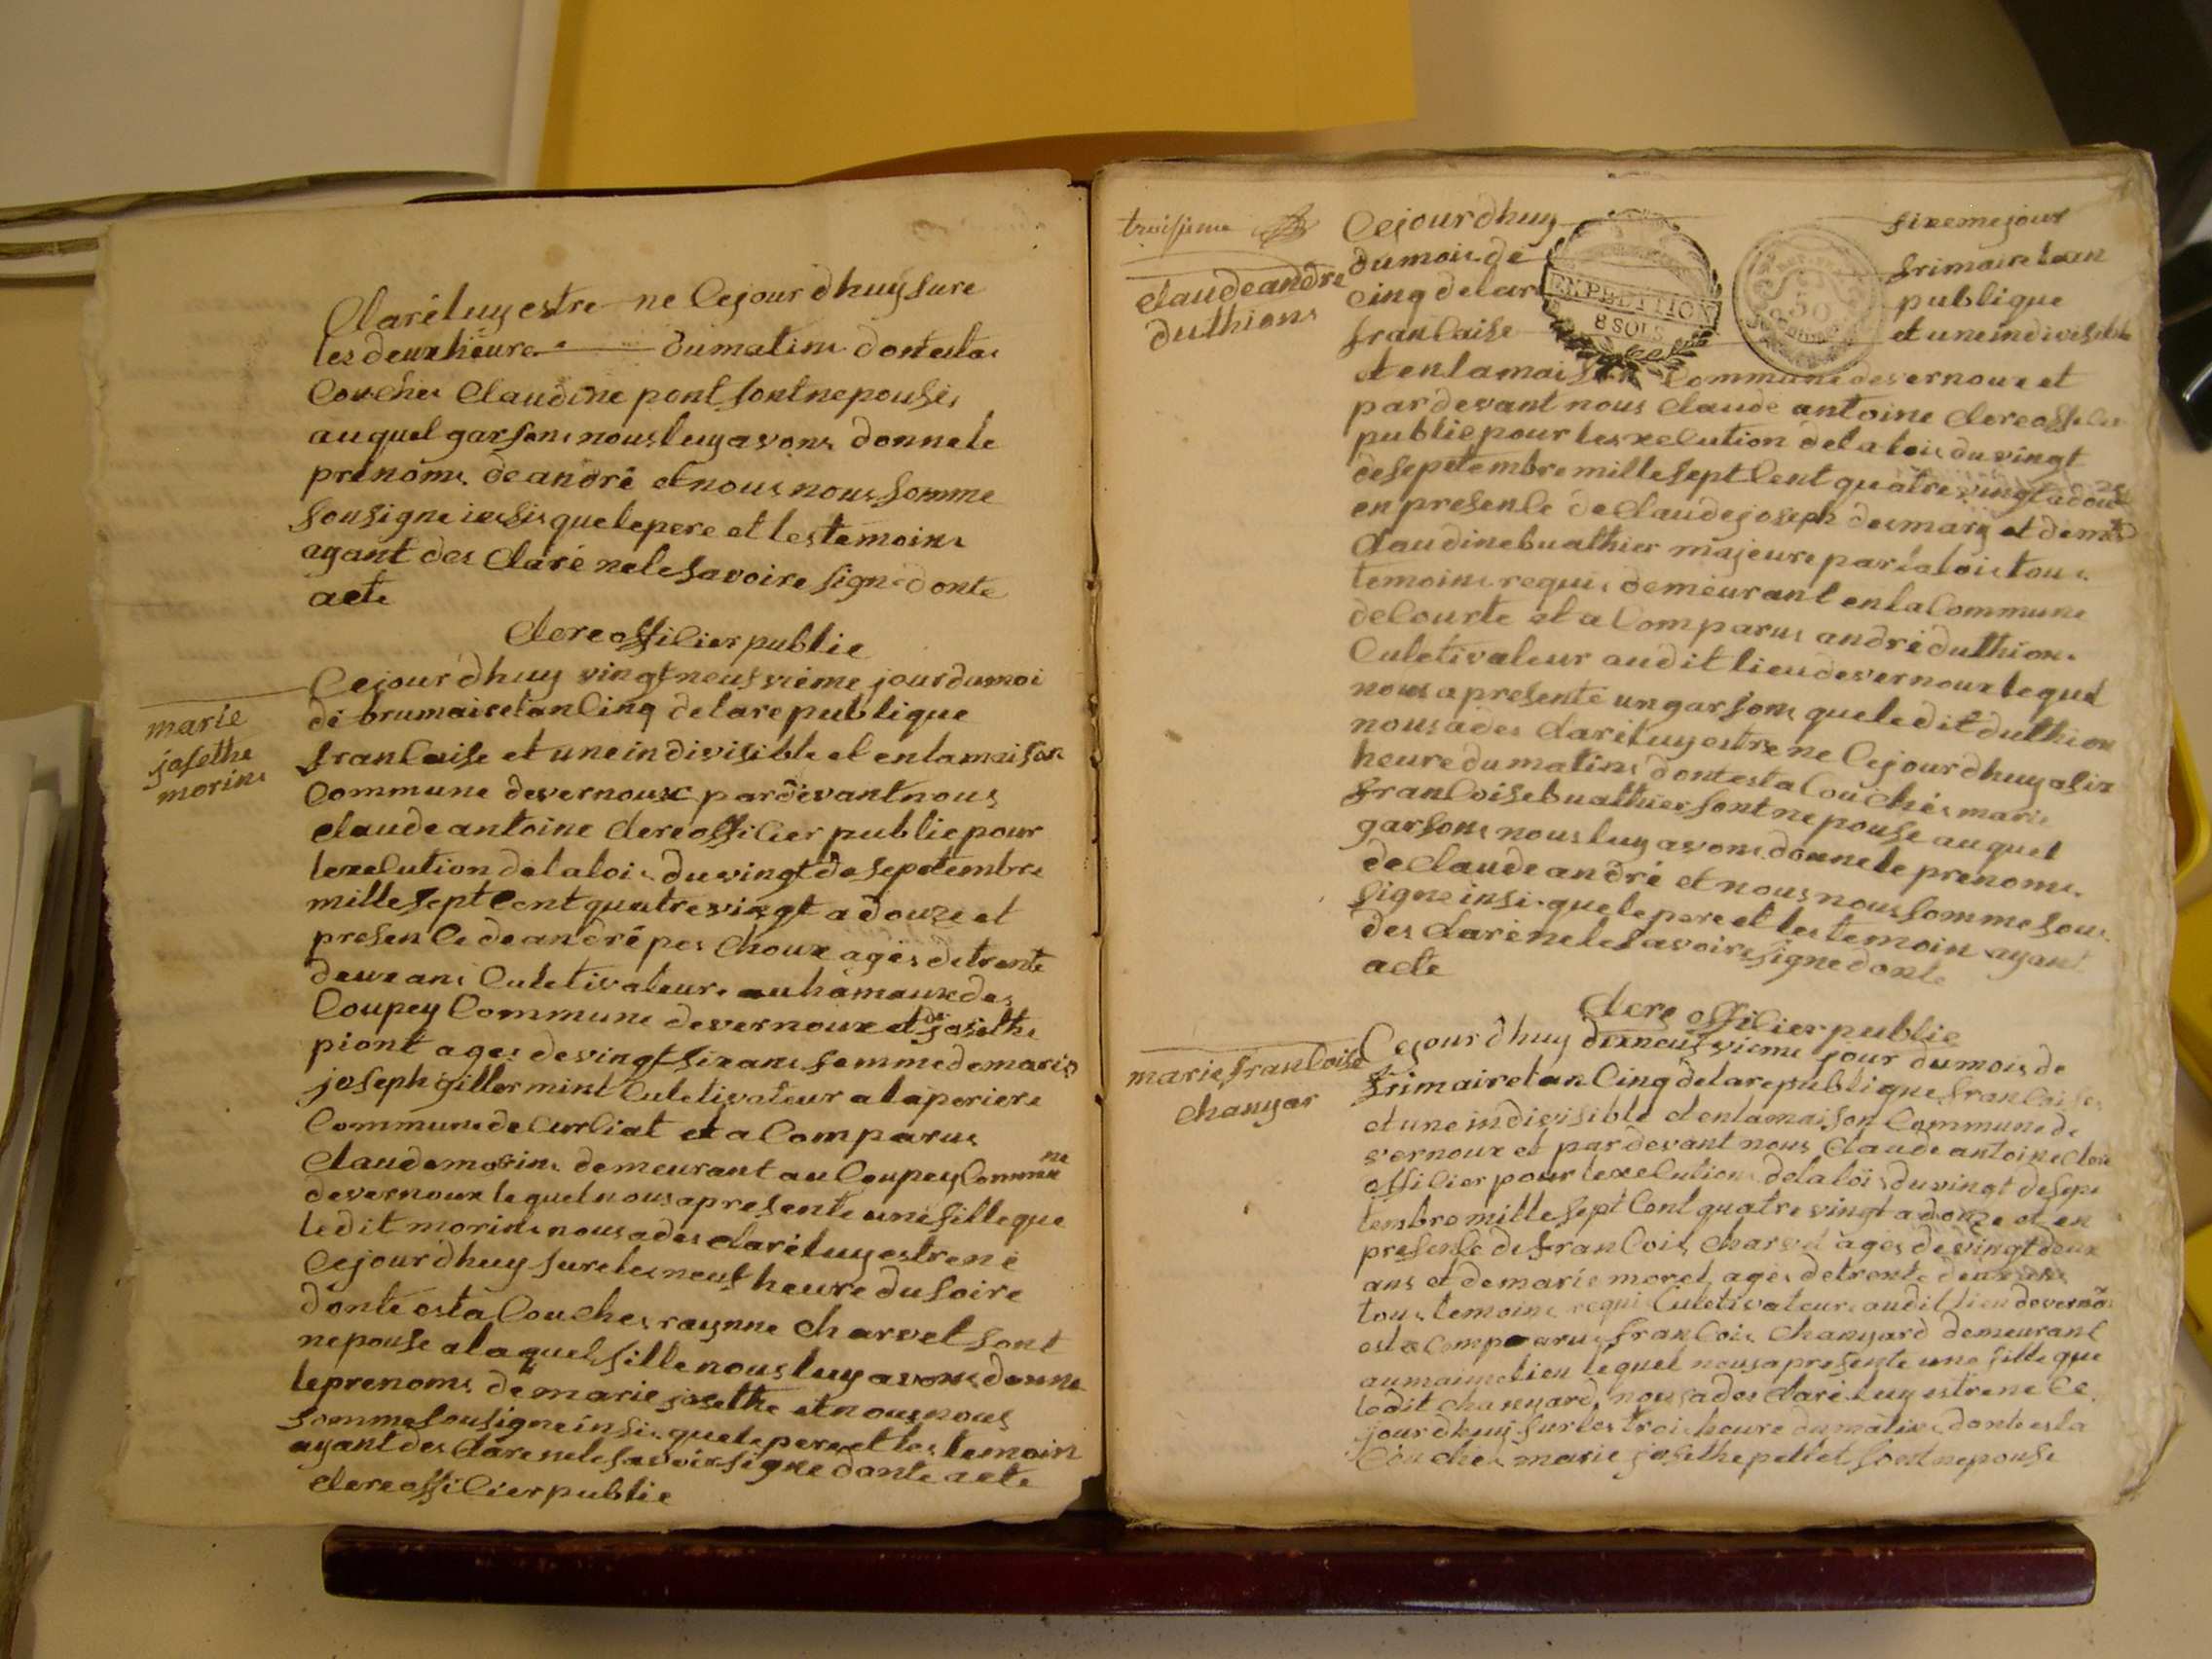 Claré luy estre ne Cejour dhuy sure
les deux heure du matin dont esta
Couches Claudine pont sont nepouse
au quel garson nous luy avons donne le
prenoms de andré et nous nous somme
sousigne insis que le pere et les temoins
ayant des claré nele savoire signe donte
acte
Clere officier public
marie
josethe
morin
Cejour dhuy vingt neufvieme jour du moi
de brumaire lan Cinq de la republique
francaise et une indivisible et en la maison
Commune devernoux par devant nous
claude antoine Clere officier public pour
lexecution de la loi du vingt de sepetembre
mille sept Cent quatre vingt a douze et
presence de andré pes Choux ages de trente
deux ans Culetivateur au hameaux des
Coupey Commune de vernoux et de josethe
piont ages de vingt six ans femme de marie
joseph gillermint Culetivateur a la periere
Commune de Curciat et a Comparus
Claude morin demeurant au Coupey Commune
devernoux lequel nous a presente une fille que
ledit morin nous a des claré luy estre né
Cejour dhuy sure les neuf heure du soire
donte esta Couches raynne Charvet sont
nepouse a laquel fille nous luy avons donne
le prenoms de marie josethe et nous nous
somme sousigne insis que le pere et les temoin
ayant des claré nele savoir signe donte acte
Clere officier public
troisieme
claude andre
duthions
Cejour dhuy sixeme jour
du mois de frimaire lan
Cinq de la re publique
EXPEDITION
8 SOLS
50
francaise et une indivisible
et en la maison Commune de vernoux et
par devant nous Claude antoine Clere officier
public pour lexecution de la loi du vingt
de sepetembre mille sept Cent quatre vingt a douze
en presence de Claude joseph desmary et de
Claudine buathier majeure par la loi tous
temoins requis demeurant en la Commune
de Courte et a Comparus andré duthion
Culetivateur audit lieu de vernoux lequel
nous a presenté un garsons que ledit duthion
nous a des claré luy estre ne Cejour dhuy a six
heure du matins dont esta Couchés marie
francoise buathier sont nepouse au quel
garsons nous luy avons donne le prenoms
de Claude andré et nous nous somme sou
signe insis que le pere et les temoin ayant
des claré nele savoire signe donte
acte
Clere officier public
marie francoise
chanyar
Cejour dhuy dixneufvieme jour du mois de
frimaire lan Cinq de la republique francoise
et une indivisible et en la maison Commune de
vernoux et par devant nous Claude antoine Clere
officier pour lexecution de la loi du vingt de sepe
tembre mille sept Cent quatre vingt a douze et en
presense de francois Charvet ages de vingt deux
ans et de marie morel ages de trente deux ans
tous temoins requi Culetivateur audit lieu de vernoux
est a Comparus francois Chanyard demeurant
au maime lieu lequel nous a presente une fille que
ledit chanyard nous a des claré luy estre ne Ce
jour dhuy sur les trois heure du matin donte esta
Couches marie josethe petiet sont nepouse